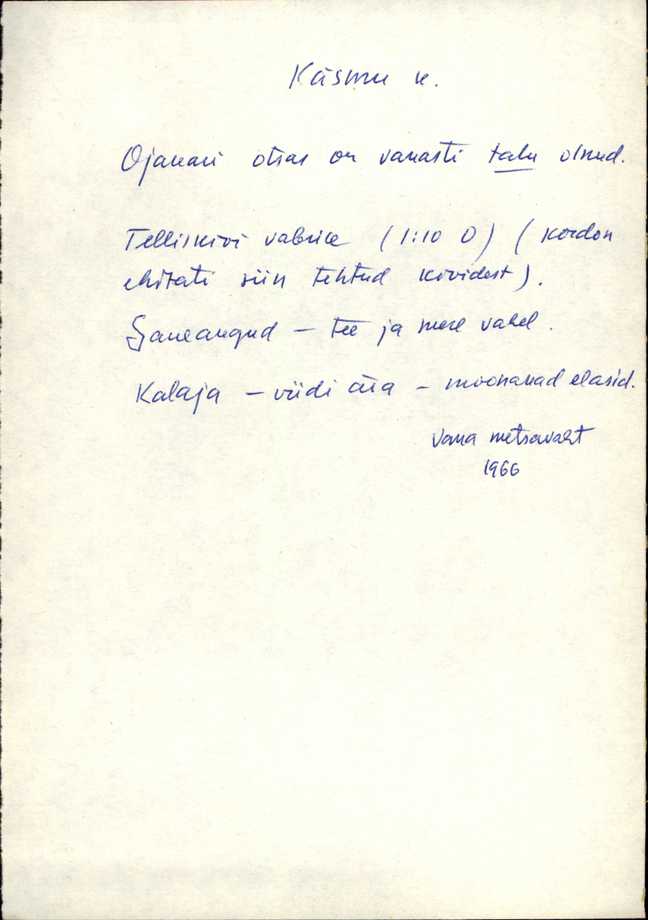 Käsmu k.
Ojanari otsas on vanasti talu olnud.
Telliskivi vabrik (1:10 0) (kordon
ehitati siin tehtud kividest).
– tee ja mere vahel.
Kalaja – viidi ära – moonakad elasid.
vana metsavaht
1966